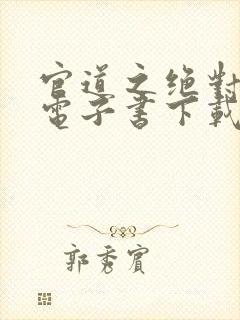 官道之绝對
電子書下載
郭秀賓